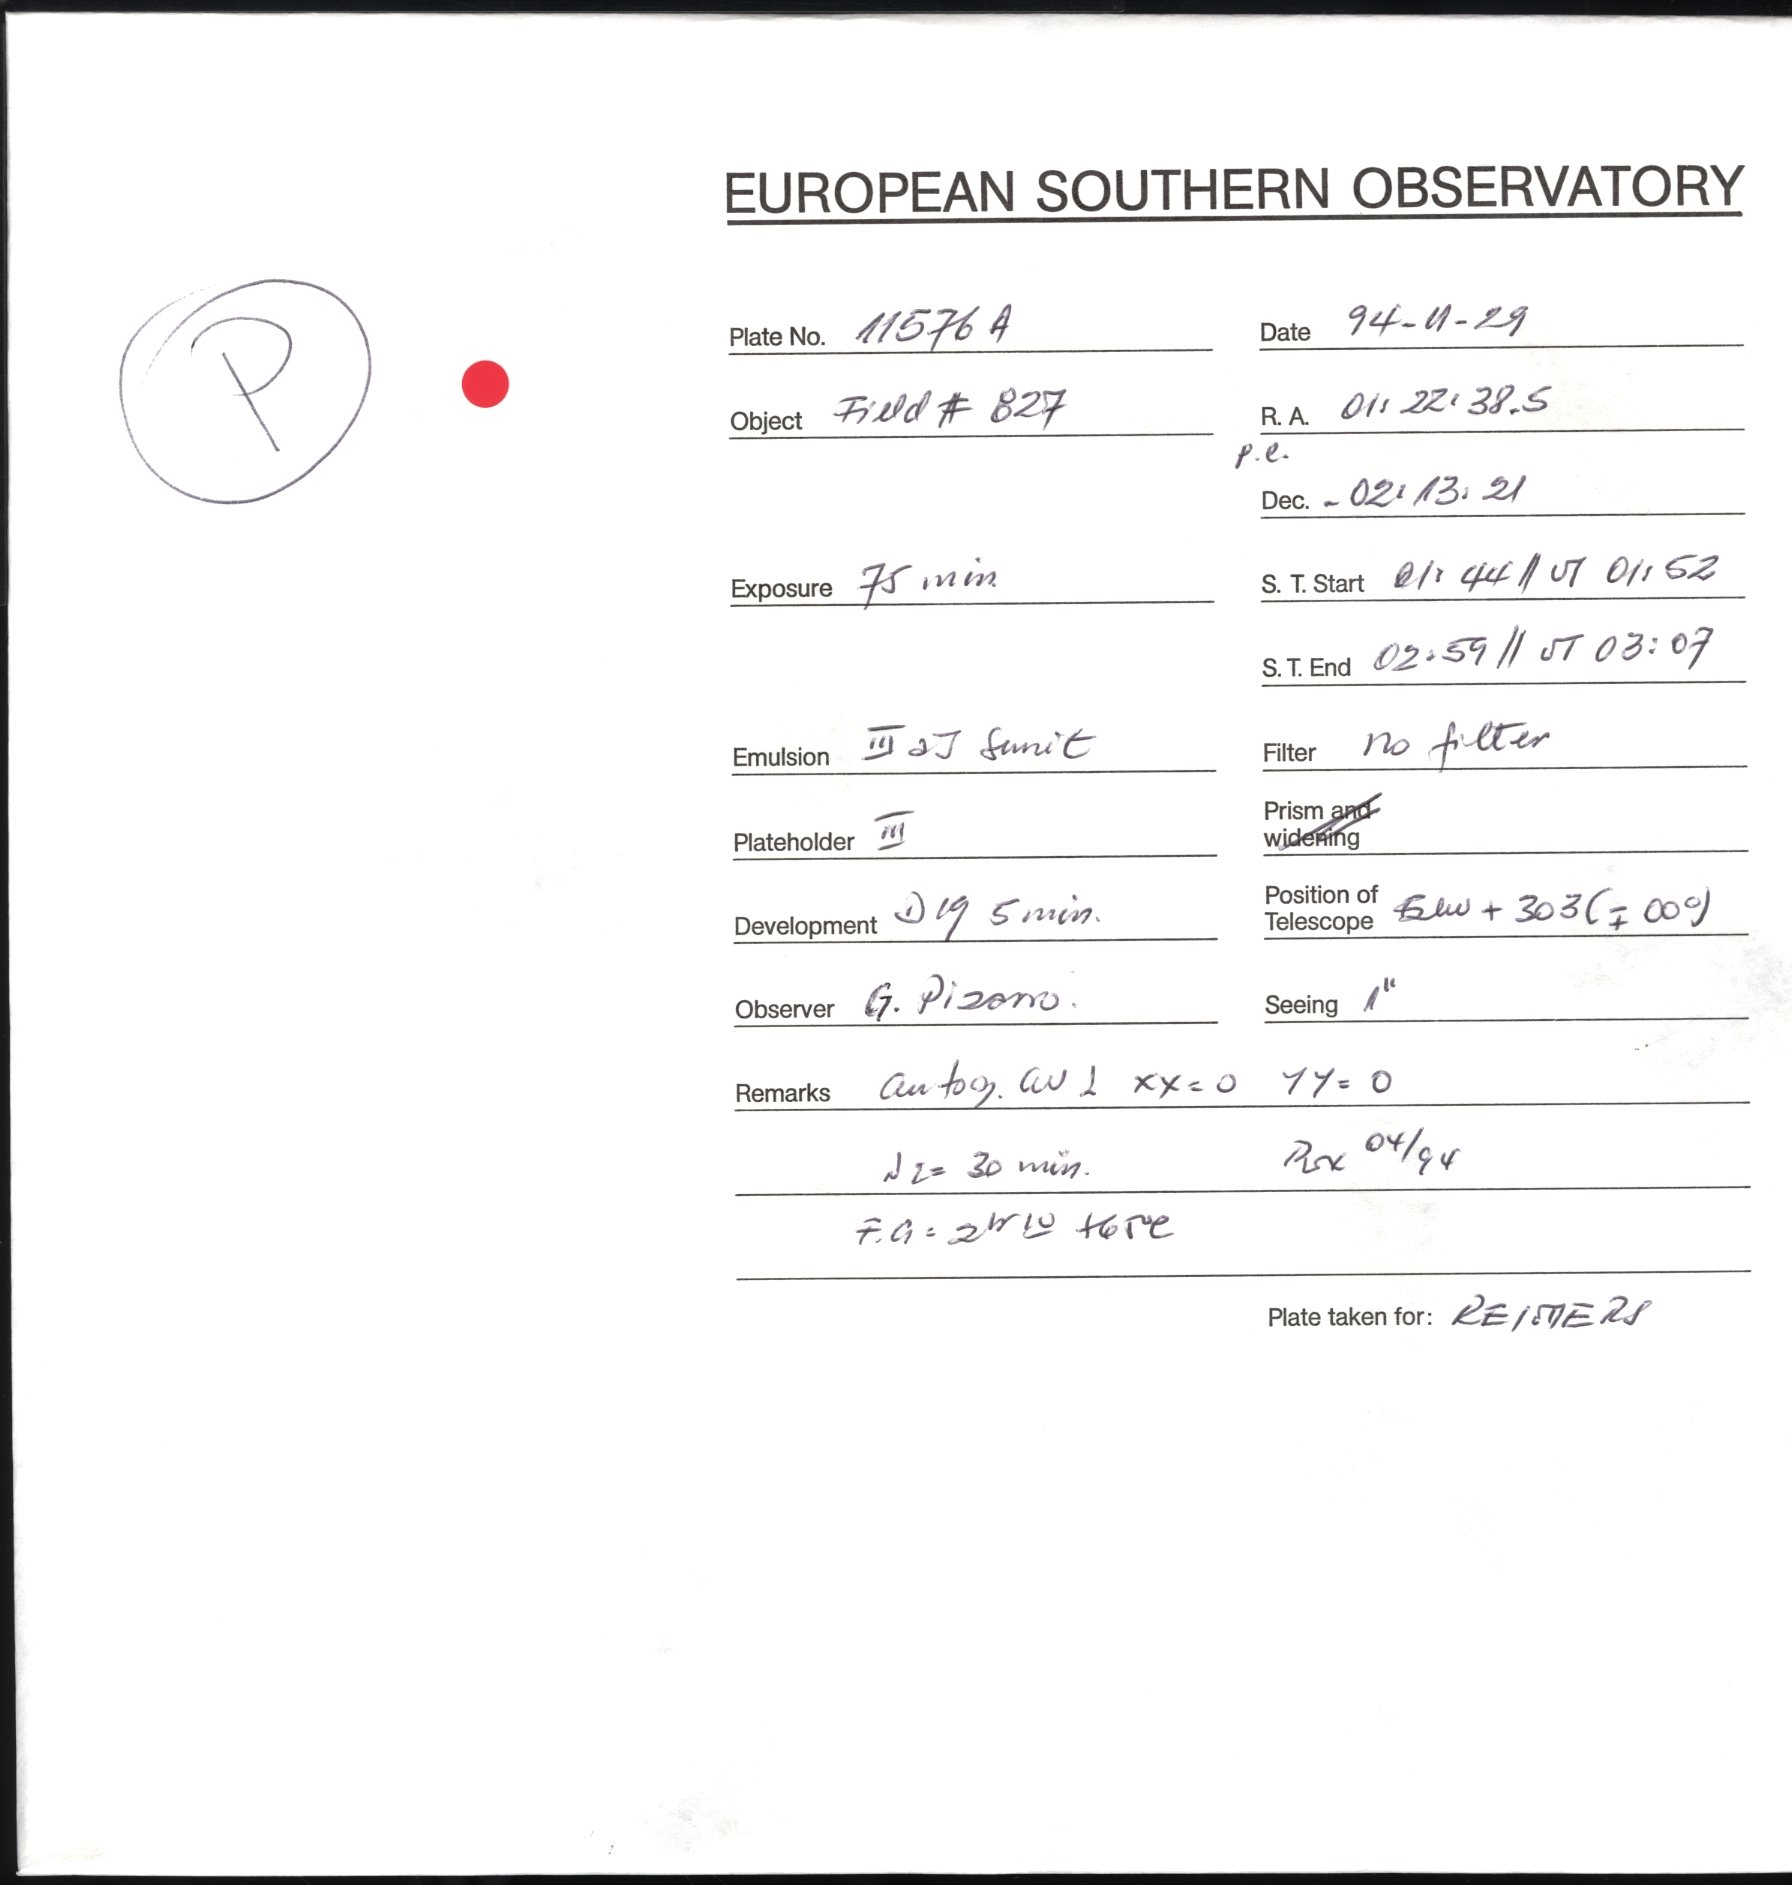 EUROPEAN SOUTHERN OBSERVATORY
P
Plate No. 11576 A Date 94-11-29
Object Field # 827 R. A. 01: 22: 38.5
p.e.
Dec. - 02: 13: 21
Exposure 75 min S. T. Start 01: 44 // UT 01: 52
S. T. End 02:59 // UT 03:07
Emulsion III aJ Filter no filter
Plateholder III Prism and widening
Development D 19 5 min. Position of Telescope + 303
Observer G. Pizarro. Seeing 1"
Remarks xx = 0 YY = 0
= 30 min. 04/94
F.G =
Plate taken for: REIMERS